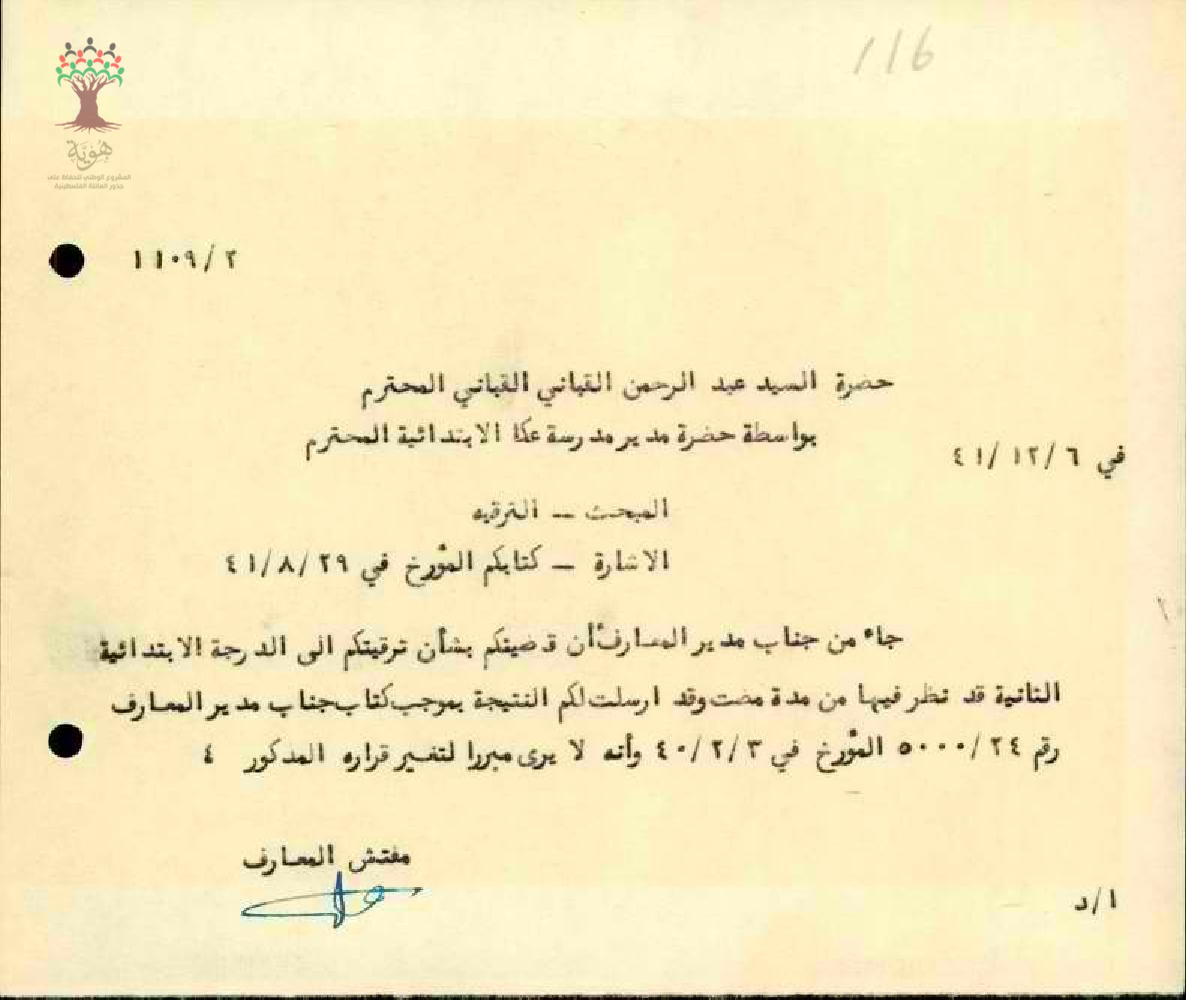 116
هوية
المشروع الوطني للحفاظ على
جذور العائلة الفلسطينية
١١٠٩/٢
حضرة السيد عبد الرحمن القباني القباني المحترم
بواسطة حضرة مدير مدرسة عكا الابتدائية المحترم
في ٤١/١٢/٦
المبحث — الترقيه
الاشارة — كتابكم المؤرخ في ٤١/٨/٢٩
جاء من جناب مدير المعارف أن قضيتكم بشأن ترقيتكم الى الدرجة الابتدائية
الثانية قد نظر فيها من مدة مضت وقد ارسلت لكم النتيجة بموجب كتاب جناب مدير المعارف
رقم ٥٠٠٠/٢٤ المؤرخ في ٤٠/٢/٣ وأنه لا يرى مبررا لتغيير قراره المذكور ٤
مفتش المعارف
ا/د